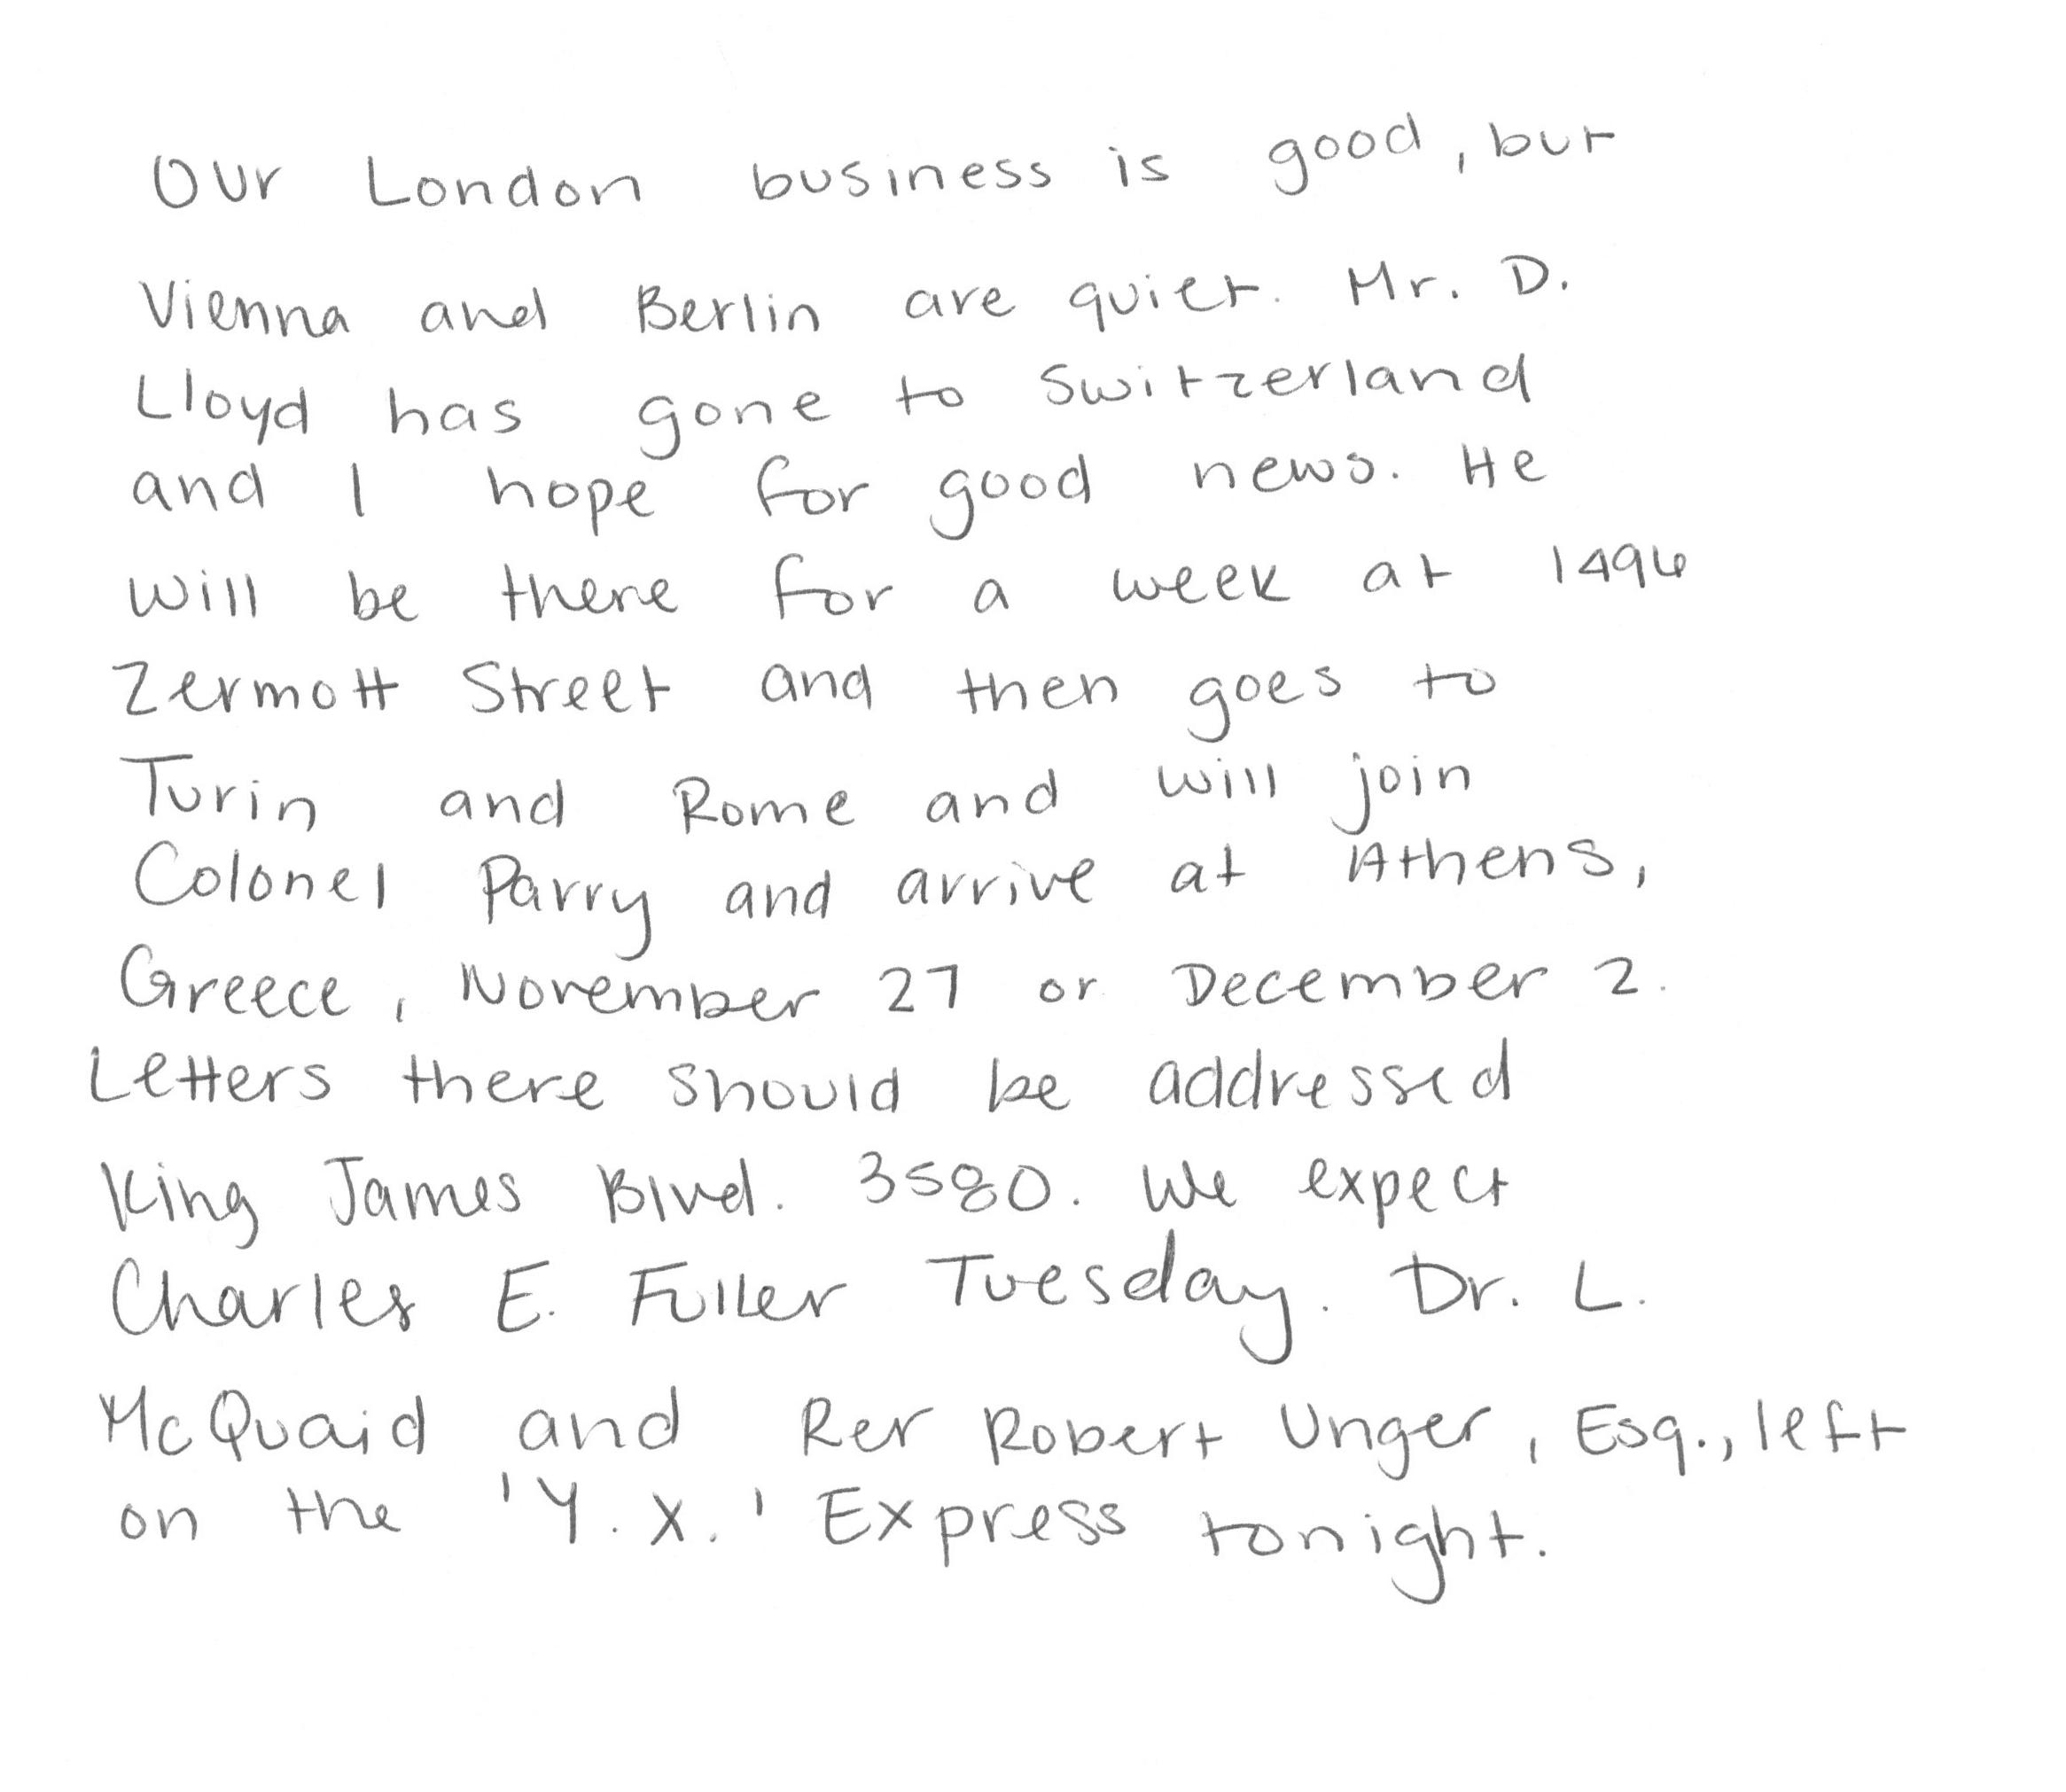 Our London business is good, but
Vienna and Berlin are quiet. Mr. D.
Lloyd has gone to Switzerland
and I hope for good news. He
will be there for a week at 1496
Zermott Street and then goes to
Turin and Rome and will join
Colonel Parry and arrive at Athens,
Greece, November 27 or December 2.
Letters there should be addressed
King James Blvd. 3580. We expect
Charles E. Fuller Tuesday. Dr. L.
McQuaid and Rer Robert Unger, Esq., left
on the 'Y. X.' Express tonight.